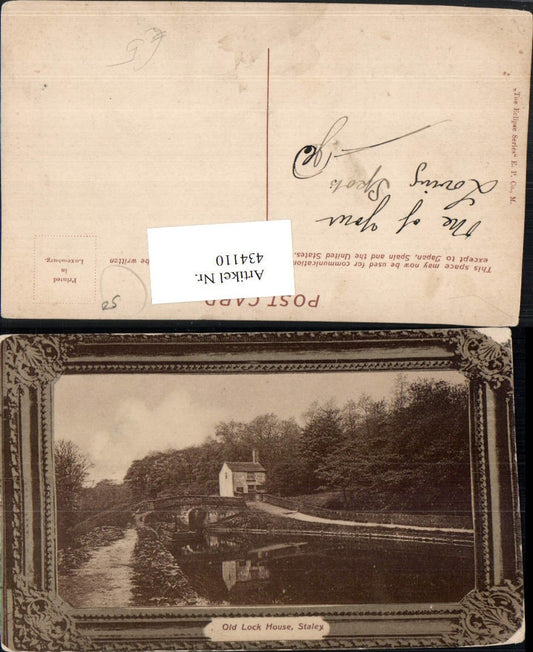 POST CARD
This space may now be used for communication
except to Japan, Spain and the United States.
be written
Printed
in
Luxemburg.
"The Eclipse Series" E. P. Co., M.
The of your
Loving
50
Artikel Nr.
434110
Old Lock House, Staley